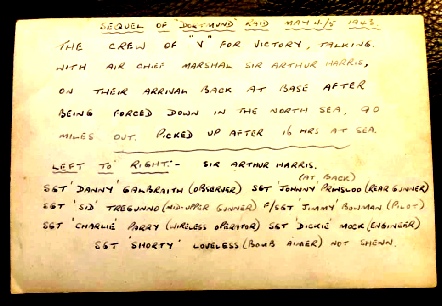 SEQUEL OF 'DORTMUND' RAID MAY 4/5 1943.
THE CREW OF "V" FOR VICTORY, TALKING.
WITH AIR CHIEF MARSHAL SIR ARTHUR HARRIS,
ON THEIR ARRIVAL BACK AT BASE AFTER
BEING FORCED DOWN IN THE NORTH SEA, 90
MILES OUT. PICKED UP AFTER 16 HRS AT SEA.
LEFT TO RIGHT:- SIR ARTHUR HARRIS.
(AT BACK)
SGT 'DANNY' GALBRAITH (OBSERVER) SGT 'JOHNNY' PRNSLOO (REAR GUNNER)
SGT 'SID' TREGUNNO (MID-UPPER GUNNER) F/SGT 'JIMMY' BOWMAN (PILOT)
SGT 'CHARLIE' PARRY (WIRELESS OPERATOR) SGT 'DICKIE' MOCK (ENGINEER)
SGT 'SHORTY' LOVELESS (BOMB AIMER) NOT SHEWN.